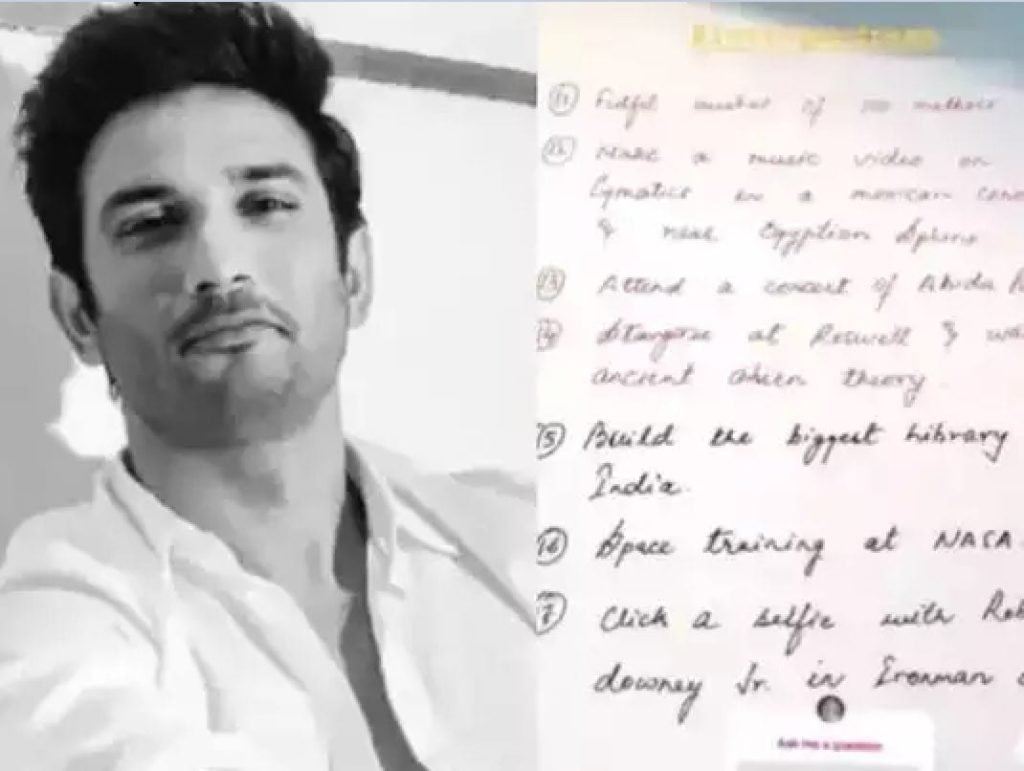 11 of
12 Make a music video on
Cymatics in a mexican
& near Egyptian
13 Attend a concert of Abida
14 Stargaze at Roswell &
ancient alien theory.
15 Build the biggest library
India.
16 Space training at NASA.
7 Click a selfie with Rob
downey Jr. in Ironman
Ask me a question